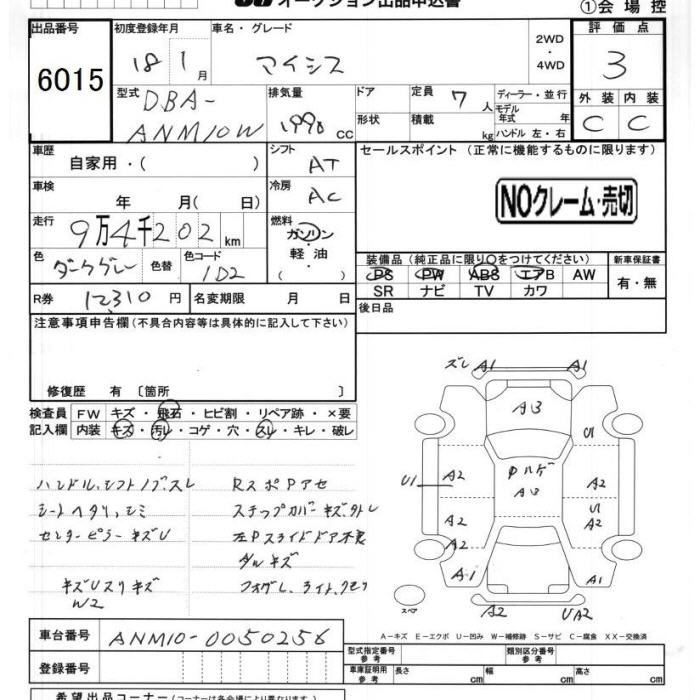 オークション出品申込書
①会場控
出品番号 初度登録年月 車名・グレード 評価点
6015 18 1月 アイシス 2WD・4WD 3
外装 内装
C C
型式 DBA-ANM10W 排気量 1998 cc ドア 形状 定員 7人 積載 kg ディーラー・並行 モデル年式 年 ハンドル 左・右
車歴 自家用・( ) シフト AT セールスポイント (正常に機能するものに限ります)
車検 年 月( 日) 冷房 AC
NOクレーム・売切
走行 9万4千202km 燃料 ガソリン・軽油・( )
色 ダークグレー 色替 色コード 1D2
装備品 (純正品に限り○をつけてください) 新車保証書
PS PW ABS エアB AW 有・無
SR ナビ TV カワ
R券 12,310円 名変期限 月 日 後日品
注意事項申告欄(不具合内容等は具体的に記入して下さい)
修復歴 有 〔箇所 〕
検査員 FW キズ・飛石・ヒビ割・リペア跡・×要
記入欄 内装 キズ・汚レ・コゲ・穴・スレ・キレ・破レ
ハンドル、シフトノブ、スレ RスポPアセ
シートヘタリ、シミ ステップカバーキズ、外レ
センターピラーキズU 左Pスライドドア不良
タルキズ
キズUスリキズ
W2
ズレ A1 A1
A13
U1
ルーゲ
A13
U1 A2 A2
U
A2 A2
A2
A1 A1
スペア
A2 UA2
A-キズ E-エクボ U-凹み W-補修跡 S-サビ C-腐食 XX-交換済
車台番号 ANM10-0050256
登録番号
型式指定番号 参考 類別区分番号 参考
車庫証明用 参考 長さ cm 幅 cm 高さ cm
希望出品コーナー(コーナーは各会場により異なります)